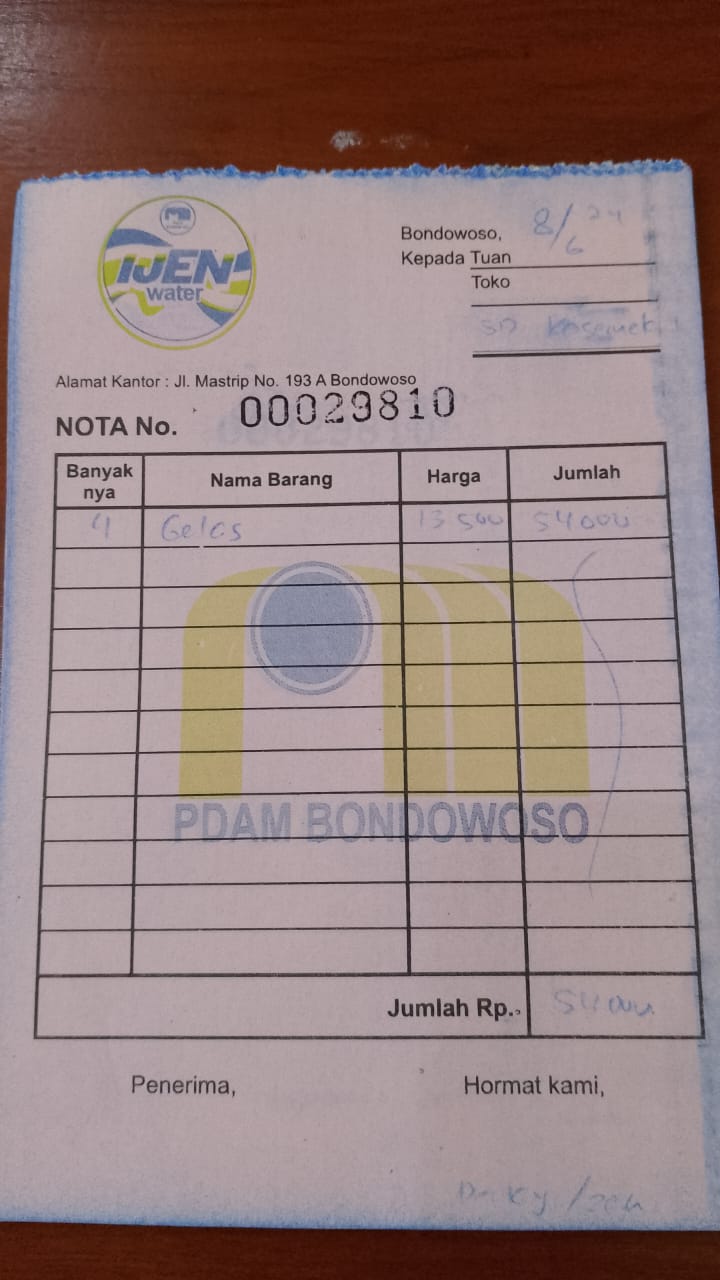 IJEN
water
Bondowoso, 8/6 24
Kepada Tuan
Toko
SD
Alamat Kantor : Jl. Mastrip No. 193 A Bondowoso
NOTA No. 00029810
Banyak nya Nama Barang Harga Jumlah
4 Gelas 13 500 54 000
PDAM BONDOWOSO
Jumlah Rp. 54 000
Penerima, Hormat kami,